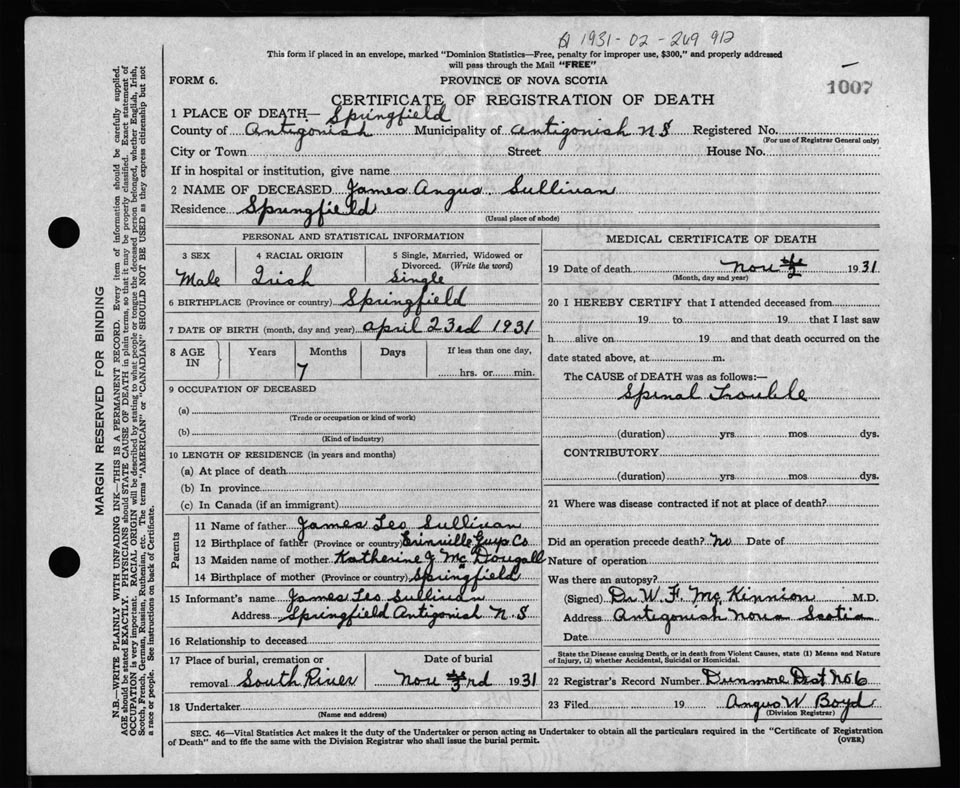 A 1931-02-269 912
This form if placed in an envelope, marked "Dominion Statistics—Free, penalty for improper use, $300," and properly addressed
will pass through the Mail "FREE"
FORM 6. PROVINCE OF NOVA SCOTIA 1007
CERTIFICATE OF REGISTRATION OF DEATH
1 PLACE OF DEATH— Springfield
County of Antigonish Municipality of Antigonish N.S Registered No.
(For use of Registrar General only)
City or Town Street House No.
If in hospital or institution, give name
2 NAME OF DECEASED James Angus Sullivan
Residence Springfield
(Usual place of abode)
PERSONAL AND STATISTICAL INFORMATION
3 SEX 4 RACIAL ORIGIN 5 Single, Married, Widowed or
Divorced. (Write the word)
Male Irish Single
6 BIRTHPLACE (Province or country) Springfield
7 DATE OF BIRTH (month, day and year) April 23rd 1931
8 AGE IN Years Months Days If less than one day,
7 hrs. or min.
9 OCCUPATION OF DECEASED
(a)
(Trade or occupation or kind of work)
(b)
(Kind of industry)
10 LENGTH OF RESIDENCE (in years and months)
(a) At place of death
(b) In province
(c) In Canada (if an immigrant)
Parents
11 Name of father James Leo Sullivan
12 Birthplace of father (Province or country) Erinville Guys. Co
13 Maiden name of mother Katherine J McDougall
14 Birthplace of mother (Province or country) Springfield
15 Informant's name James Leo Sullivan
Address Springfield Antigonish N.S
16 Relationship to deceased
17 Place of burial, cremation or Date of burial
removal South River Nov 3rd 1931
18 Undertaker
(Name and address)
MEDICAL CERTIFICATE OF DEATH
19 Date of death Nov 2 1931
(Month, day and year)
20 I HEREBY CERTIFY that I attended deceased from
19 to 19 that I last saw
h alive on 19 and that death occurred on the
date stated above, at m.
The CAUSE of DEATH was as follows:—
Spinal Trouble
(duration) yrs. mos. dys.
CONTRIBUTORY
(duration) yrs. mos. dys.
21 Where was disease contracted if not at place of death?
Did an operation precede death? No Date of
Nature of operation
Was there an autopsy?
(Signed) Dr W. F. McKinnion M.D.
Address Antigonish Nova Scotia
Date
State the Disease causing Death, or in death from Violent Causes, state (1) Means and Nature
of Injury, (2) whether Accidental, Suicidal or Homicidal.
22 Registrar's Record Number Dunmore Dist No 6
23 Filed 19 Angus W Boyd
(Division Registrar)
SEC. 46—Vital Statistics Act makes it the duty of the Undertaker or person acting as Undertaker to obtain all the particulars required in the "Certificate of Registration
of Death" and to file the same with the Division Registrar who shall issue the burial permit. (OVER)
MARGIN RESERVED FOR BINDING
N.B.—WRITE PLAINLY WITH UNFADING INK—THIS IS A PERMANENT RECORD. Every item of information should be carefully supplied.
AGE should be stated EXACTLY. PHYSICIANS should STATE CAUSE OF DEATH in plain terms, so that it may be properly classified. Exact statement of
OCCUPATION is very important. RACIAL ORIGIN will be described by stating to what people or tongue the deceased person belonged, whether English, Irish,
Scotch, French, German, Russian, Ruthenian, etc. The terms "AMERICAN" or "CANADIAN" SHOULD NOT BE USED as they express citizenship but not
a race or people. See instructions on back of Certificate.